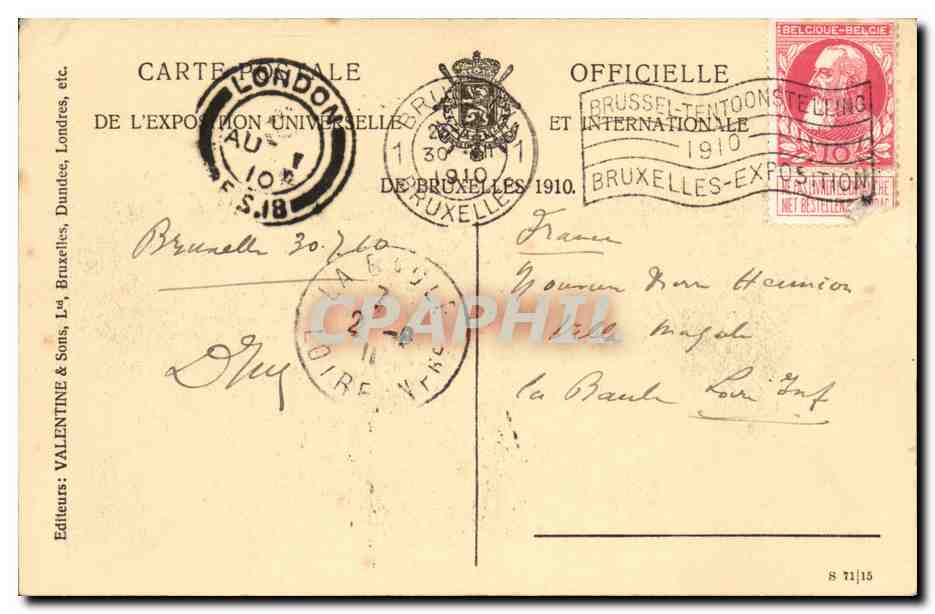 CARTE POSTALE OFFICIELLE
DE L'EXPOSITION UNIVERSELLE ET INTERNATIONALE
DE BRUXELLES 1910.
LONDON
AU 1
10
F.S.18
1 30 1
1910
BRUXELLES
BRUSSEL-TENTOONSTELLING
1910
BRUXELLES-EXPOSITION
BELGIQUE-BELGIË
10
NET BESTELLEN
Bruxelles 30.7.10
France
Villa
la Baule Loire Inf
LA BAULE
LOIRE INFRE
CPAPHIL
Editeurs: VALENTINE & Sons, Ltd, Bruxelles, Dundee, Londres, etc.
S 71|15